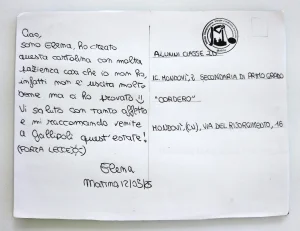 Ciao,
sono Elena, ho creato
questa cartolina con molta
pazienza cosa che io non ho,
infatti non è uscita molto
bene ma ci ho provato!!
Vi saluto con tanto affetto
e mi raccomando venite
a Gallipoli quest'estate!
(FORZA LECCE)
Elena
Matino 12/03/25
ALUNNI CLASSE 2D
I.C. MONDOVÌ 2 SECONDARIA DI PRIMO GRADO
"CORDERO"
MONDOVÌ, (CN), VIA DEL RISORGIMENTO, 16